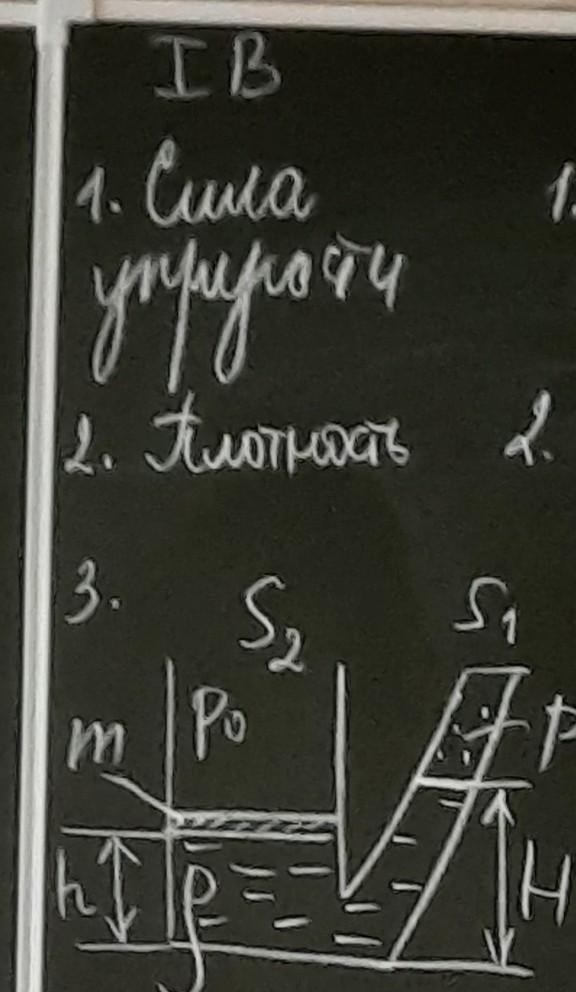 I В
1. Сила
упругости
1.
2. Плотность
2.
3.
S₂
S₁
P₀
m
P
h
ρ
H